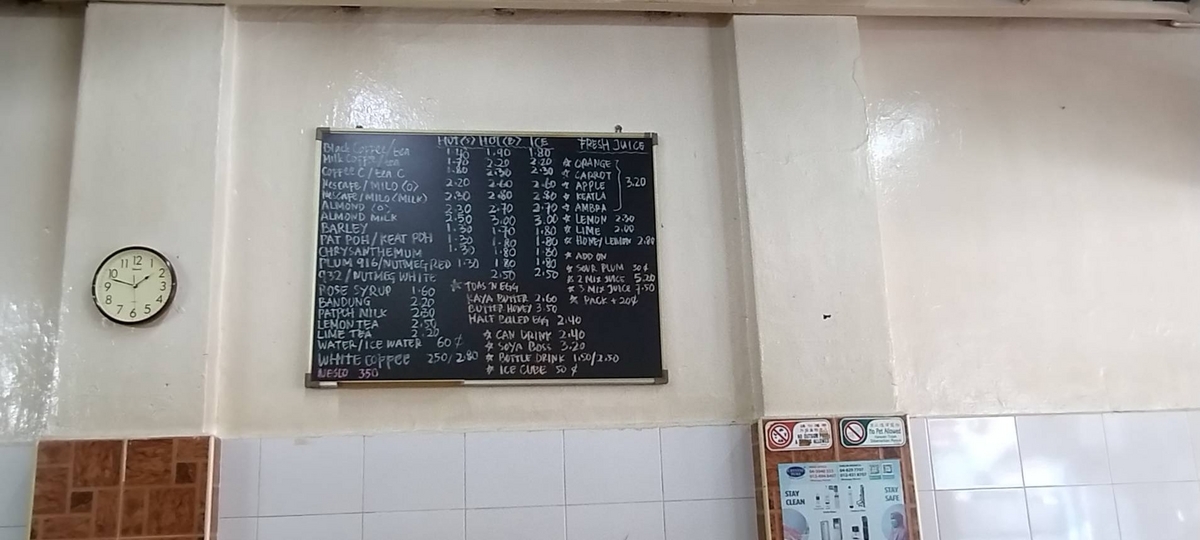 HOT(S) HOT(B) ICE
Black Coffee/tea 1.40 1.90 1.80
Milk Coffee/tea 1.70 2.20 2.20
Coffee C/tea C 1.80 2.30 2.30
Nescafe/MILO (O) 2.20 2.60 2.60
Nescafe/MILO (MILK) 2.30 2.80 2.80
ALMOND (O) 2.20 2.70 2.70
ALMOND MILK 2.50 3.00 3.00
BARLEY 1.30 1.70 1.80
PAT POH/KEAT POH 1.30 1.80 1.80
CHRYSANTHEMUM 1.30 1.80 1.80
PLUM 916/NUTMEG RED 1.30 1.80 1.80
932/NUTMEG WHITE 2.50 2.50
ROSE SYRUP 1.60
BANDUNG 2.20
PATPOH MILK 2.30
LEMON TEA 2.50
LIME TEA 2.20
WATER/ICE WATER 60¢
WHITE COFFEE 250/2.80
NESLO 350
* TOAS'N EGG
KAYA BUTTER 2.60
BUTTER HONEY 3.50
HALF BOILED EGG 2.40
* CAN DRINK 2.40
* SOYA BOSS 3.20
* BOTTLE DRINK 1.50/2.50
* ICE CUBE 50¢
FRESH JUICE
* ORANGE
* CARROT
* APPLE
* KEATLA
* AMBRA
3.20
* LEMON 2.30
* LIME 2.00
* HONEY LEMON 2.80
* ADD ON
* SOUR PLUM 30¢
* 2 MIX JUICE 5.20
* 3 MIX JUICE 7.50
* PACK + 20¢
12
1
2
3
4
5
6
7
8
9
10
11
No Pet Allowed
STAY CLEAN
STAY SAFE